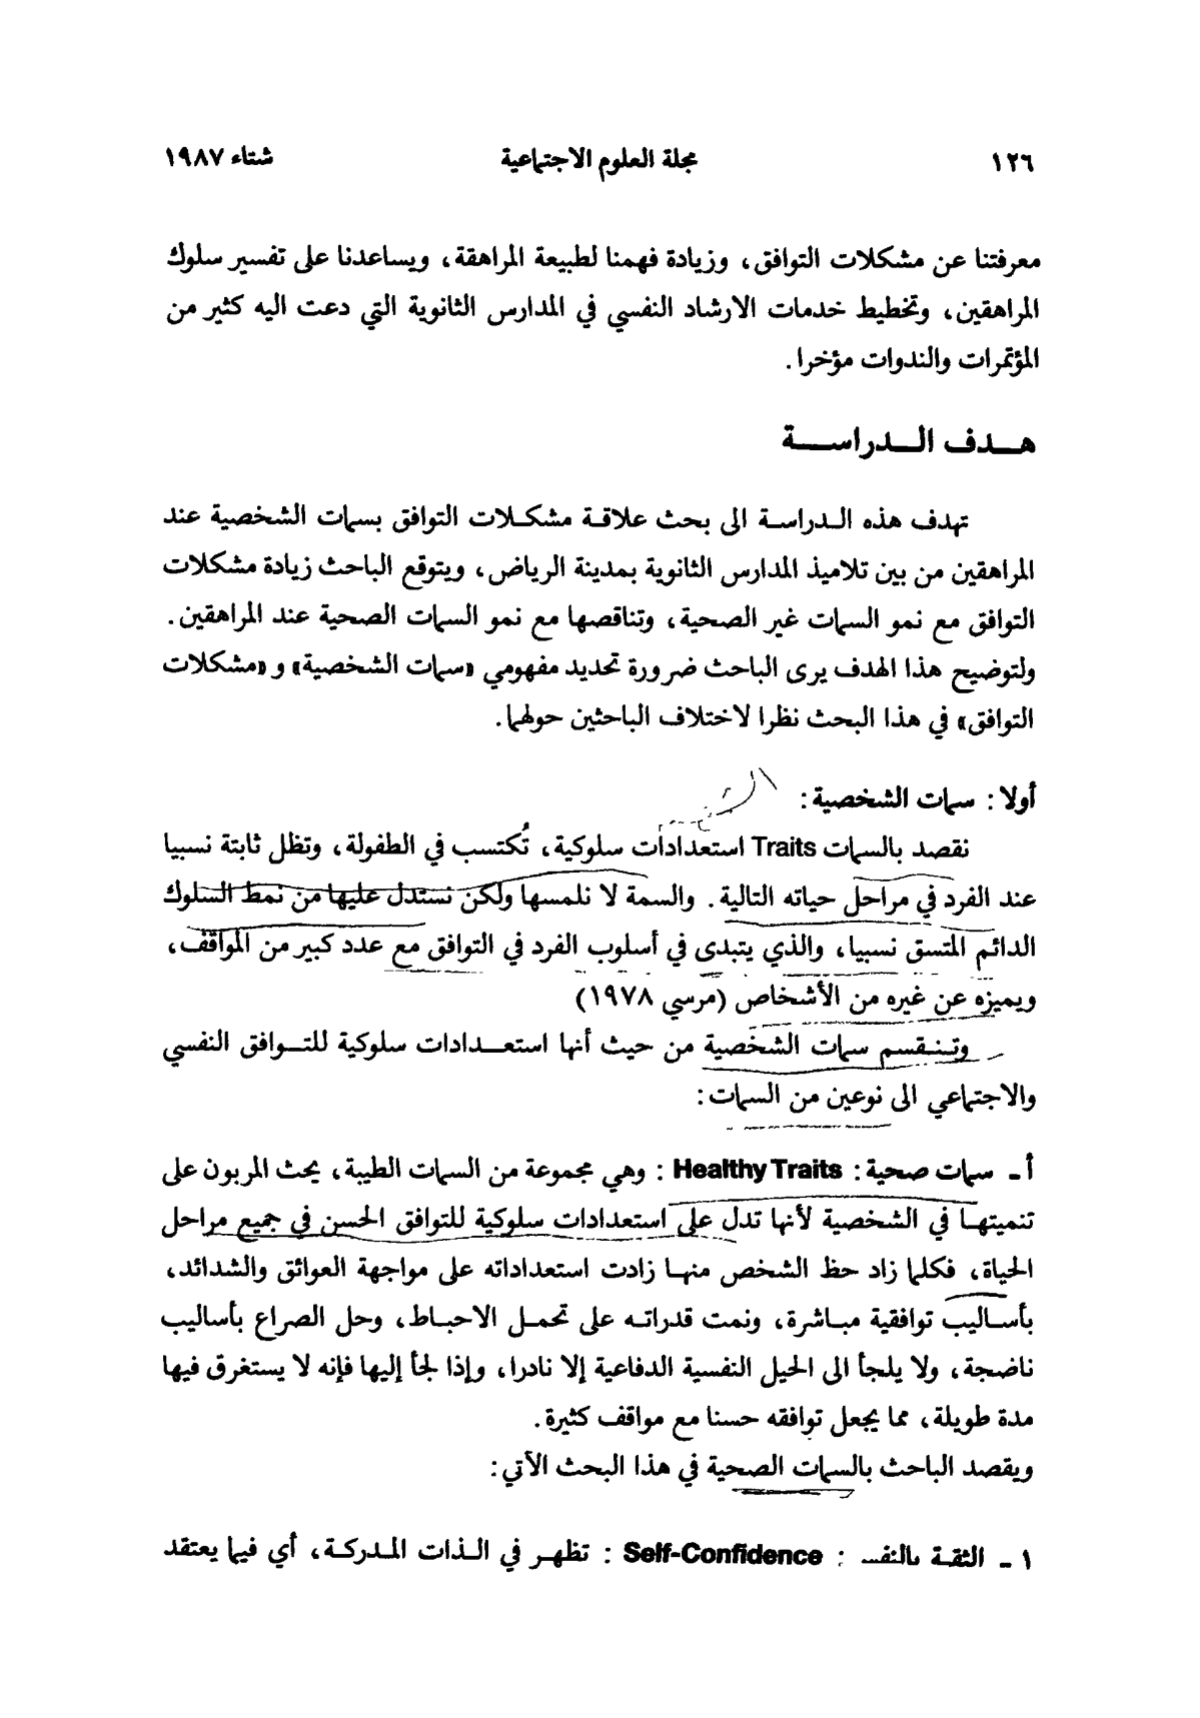 ١٢٦ مجلة العلوم الاجتماعية شتاء ١٩٨٧
معرفتنا عن مشكلات التوافق، وزيادة فهمنا لطبيعة المراهقة، ويساعدنا على تفسير سلوك
المراهقين، وتخطيط خدمات الارشاد النفسي في المدارس الثانوية التي دعت اليه كثير من
المؤتمرات والندوات مؤخرا.
هـدف الـدراسـة
تهدف هذه الـدراسـة الى بحث علاقـة مشكـلات التوافق بسمات الشخصية عند
المراهقين من بين تلاميذ المدارس الثانوية بمدينة الرياض، ويتوقع الباحث زيادة مشكلات
التوافق مع نمو السمات غير الصحية، وتناقصها مع نمو السمات الصحية عند المراهقين.
ولتوضيح هذا الهدف يرى الباحث ضرورة تحديد مفهومي «سمات الشخصية» و «مشكلات
التوافق» في هذا البحث نظرا لاختلاف الباحثين حولهما.
أولا: سمات الشخصية:
نقصد بالسمات Traits استعدادات سلوكية، تُكتسب في الطفولة، وتظل ثابتة نسبيا
عند الفرد في مراحل حياته التالية. والسمة لا نلمسها ولكن نستدل عليها من نمط السلوك
الدائم المتسق نسبيا، والذي يتبدى في أسلوب الفرد في التوافق مع عدد كبير من المواقف،
ويميزه عن غيره من الأشخاص (مرسي ١٩٧٨)
وتـنـقسم سمات الشخصية من حيث أنها استعـدادات سلوكية للتـوافق النفسي
والاجتماعي الى نوعين من السمات:
أ ـ سمات صحية: Healthy Traits : وهي مجموعة من السمات الطيبة، يحث المربون على
تنميتهـا في الشخصية لأنها تدل على استعدادات سلوكية للتوافق الحسن في جميع مراحل
الحياة، فكلما زاد حظ الشخص منهـا زادت استعداداته على مواجهة العوائق والشدائد،
بأسـاليب توافقية مبـاشرة، ونمت قدراتـه على تحمـل الاحبـاط، وحل الصراع بأساليب
ناضجة، ولا يلجأ الى الحيل النفسية الدفاعية إلا نادرا، وإذا لجأ إليها فإنه لا يستغرق فيها
مدة طويلة، مما يجعل توافقه حسنا مع مواقف كثيرة.
ويقصد الباحث بالسمات الصحية في هذا البحث الآتي:
١ ـ الثقـة بالنفس : Self-Confidence : تظهـر في الـذات المـدركـة، أي فيما يعتقد